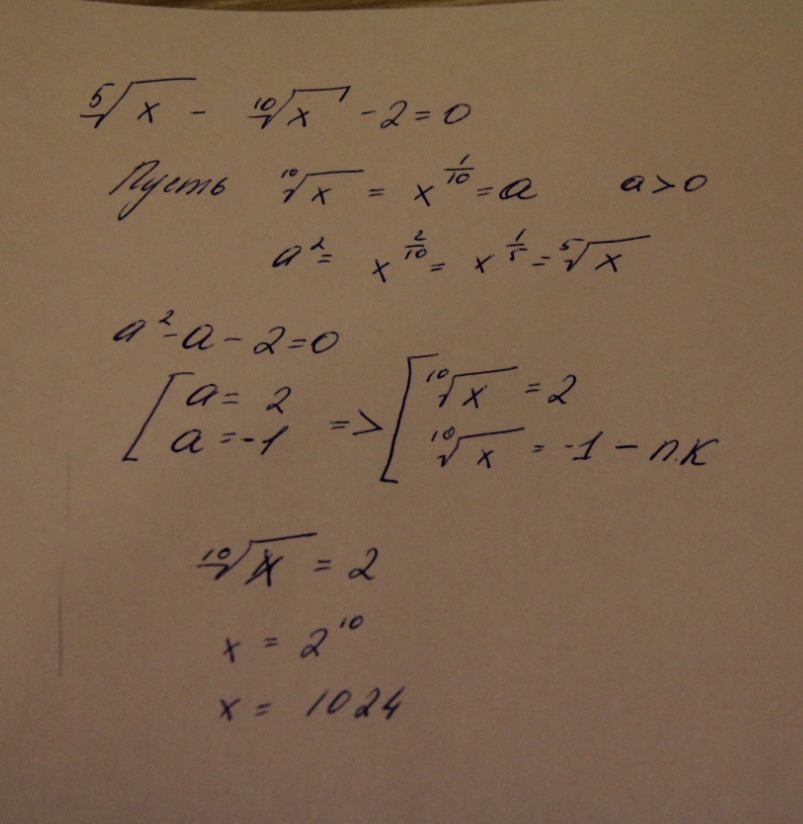 ⁵√x - ¹⁰√x - 2 = 0
Пусть ¹⁰√x = x^(1/10) = a a > 0
a² = x^(2/10) = x^(1/5) = ⁵√x
a² - a - 2 = 0
[ a = 2 => [ ¹⁰√x = 2
a = -1 ¹⁰√x = -1 - п.к
¹⁰√x = 2
x = 2¹⁰
x = 1024